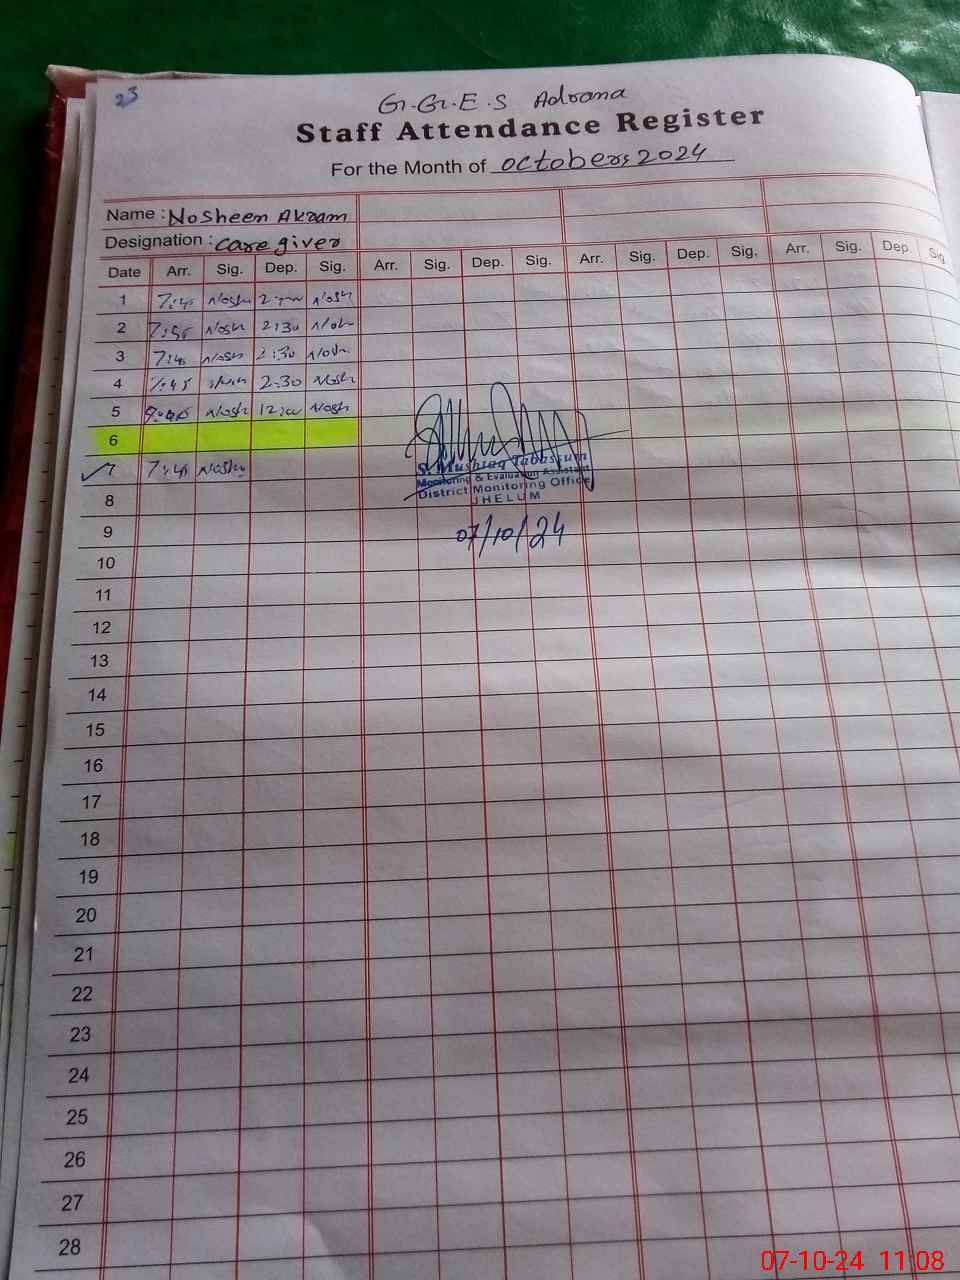 23
G.G.E.S Adrana
Staff Attendance Register
For the Month of October, 2024
Name : Nosheen Akram
Designation : care giver
Date Arr. Sig. Dep. Sig. Arr. Sig. Dep. Sig. Arr. Sig. Dep. Sig. Arr. Sig. Dep. Sig.
1 7:45 Nosh Nosh
2 Nosh 2:30 Nosh
3 7:45 Nosh 2:30 Nosh
4 7:45 2:30 Nosh
5 Nosh 12:00 Nosh
6
7 7:45 Nosh
S. Mushtaq Tabassum
Monitoring & Evaluation Assistant
District Monitoring Office
JHELUM
8
9
07/10/24
10
11
12
13
14
15
16
17
18
19
20
21
22
23
24
25
26
27
28
07-10-24 11:08